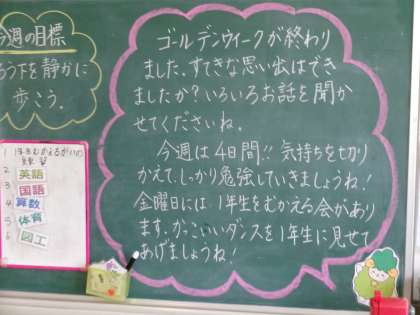 今週の目標
ろう下を静かに
歩こう.
1 1年生むかえる会の
練習
2 英語
3 国語
4 算数
5 体育
6 図工
ゴールデンウィークが終わり
ました.すてきな思い出はでき
ましたか?いろいろお話を聞か
せてくださいね.
今週は4日間!!気持ちを切り
かえて,しっかり勉強していきましょうね!
金曜日には,1年生をむかえる会があり
ます.かっこいいダンスを1年生に見せて
あげましょうね!